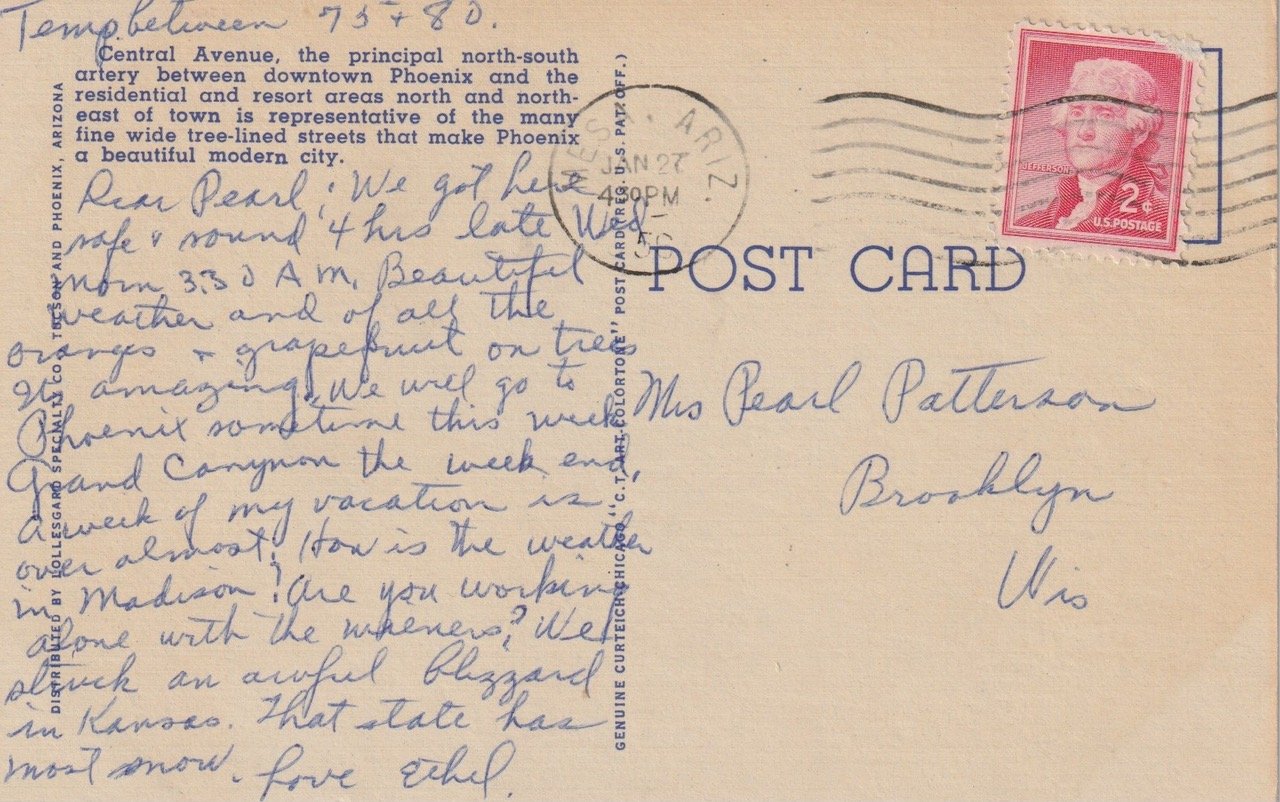 Temp between 75 + 80.
Central Avenue, the principal north-south
artery between downtown Phoenix and the
residential and resort areas north and north-
east of town is representative of the many
fine wide tree-lined streets that make Phoenix
a beautiful modern city.
Dear Pearl; We got here
safe & sound 4 hrs late Wed
morn 3:30 A M. Beautiful
weather and of all the
oranges & grapefruit on trees
It amazing. We will go to
Phoenix sometime this week
Grand Canynon the week end,
a week of my vacation is
over almost. How is the weather
in Madison? Are you working
alone with the? We
struck an awful blizzard
in Kansas. That state has
most snow. Love Ethel.
DISTRIBUTED BY LOLLESGARD SPECIALTY CO. TUCSON AND PHOENIX, ARIZONA
GENUINE CURTEICH-CHICAGO "C.T. ART-COLORTONE" POST CARD (REG. U.S. PAT. OFF.)
MESA, ARIZ.
JAN 27
4:30 PM
JEFFERSON
2¢
U.S. POSTAGE
POST CARD
Mrs Pearl Patterson
Brooklyn
Wis